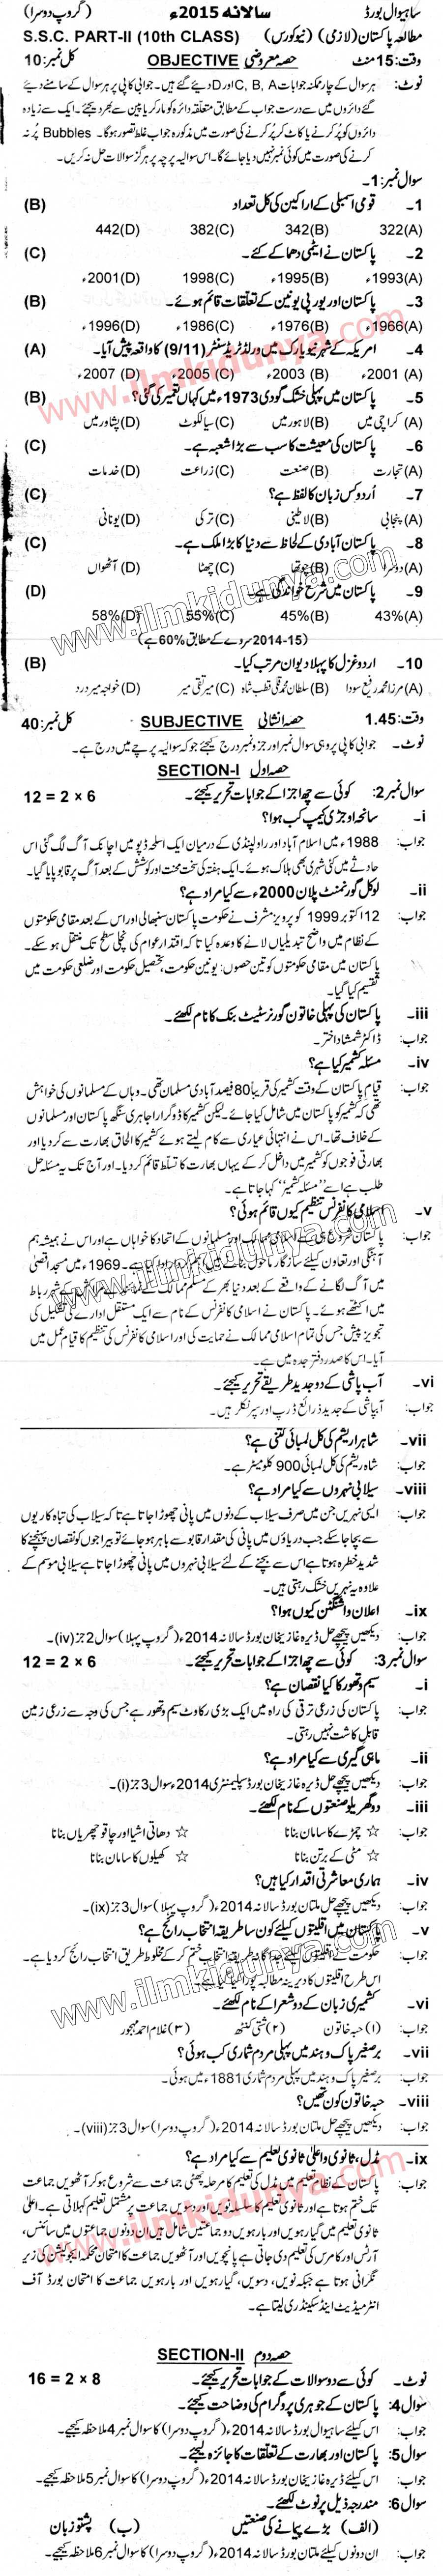 ساہیوال بورڈ سالانہ 2015ء (گروپ دوسرا)
مطالعہ پاکستان (لازمی) (نیوکورس) S.S.C. PART-II (10th CLASS)
وقت: 15 منٹ حصہ معروضی OBJECTIVE کل نمبر: 10
نوٹ: ہر سوال کے چار ممکنہ جوابات C, B, A اور D دیئے گئے ہیں۔ جوابی کاپی پر ہر سوال کے سامنے دیئے
گئے دائروں میں سے درست جواب کے مطابق متعلقہ دائرہ کو مارکر یا پین سے بھر دیجئے۔ ایک سے زیادہ
دائروں کو پُر کرنے یا کاٹ کر پُر کرنے کی صورت میں مذکورہ جواب غلط تصور ہوگا۔ Bubbles پُر نہ
کرنے کی صورت میں کوئی نمبر نہیں دیا جائے گا۔ اس سوالیہ پرچہ پر ہرگز سوالات حل نہ کریں۔
سوال نمبر: 1۔
1۔ قومی اسمبلی کے اراکین کی کل تعداد (B)
(A) 322 (B) 342 (C) 382 (D) 442
2۔ پاکستان نے ایٹمی دھماکے کئے۔ (C)
(A) 1993ء (B) 1995ء (C) 1998 (D) 2001ء
3۔ پاکستان اور یورپی یونین کے تعلقات قائم ہوئے۔ (B)
(A) 1966ء (B) 1976ء (C) 1986ء (D) 1996ء
4۔ امریکہ کے شہر نیویارک میں ورلڈ ٹریڈ سنٹر (9/11) کا واقعہ پیش آیا۔ (A)
(A) 2001ء (B) 2003ء (C) 2005ء (D) 2007ء
5۔ پاکستان میں پہلی خشک گودی 1973ء میں کہاں تعمیر کی گئی؟ (B)
(A) کراچی میں (B) لاہور میں (C) سیالکوٹ (D) پشاور میں
6۔ پاکستان کی معیشت کا سب سے بڑا شعبہ ہے۔ (C)
(A) تجارت (B) صنعت (C) زراعت (D) خدمات
7۔ اُردو کس زبان کا لفظ ہے؟ (C)
(A) پنجابی (B) لاطینی (C) ترکی (D) یونانی
8۔ پاکستان آبادی کے لحاظ سے دنیا کا بڑا ملک ہے۔ (C)
(A) دوسرا (B) چوتھا (C) چھٹا (D) آٹھواں
9۔ پاکستان میں شرح خواندگی ہے۔ (D)
(A) 43% (B) 45% (C) 55% (D) 58%
(2014-15 سروے کے مطابق 60% ہے)
10۔ اردو غزل کا پہلا دیوان مرتب کیا۔ (B)
(A) مرزا محمد رفیع سودا (B) سلطان محمد قلی قطب شاہ (C) میر تقی میر (D) خواجہ میر درد
وقت: 1.45 حصہ انشائی SUBJECTIVE کل نمبر: 40
نوٹ۔ جوابی کاپی پر وہی سوال نمبر اور جزو نمبر درج کیجئے جو کہ سوالیہ پرچے میں درج ہے۔
حصہ اول SECTION-I
سوال نمبر 2: کوئی سے چھ اجزا کے جوابات تحریر کیجئے۔ 12 = 2 × 6
i۔ سانحہ اوجڑی کیمپ کب ہوا؟
جواب: 1988ء میں اسلام آباد اور راولپنڈی کے درمیان ایک اسلحہ ڈپو میں اچانک آگ لگ گئی اس
حادثے میں کئی شہری بھی ہلاک ہوئے۔ ایک ہفتہ کی سخت محنت اور کوشش کے بعد آگ پر قابو پایا گیا۔
ii۔ لوکل گورنمنٹ پلان 2000ء سے کیا مراد ہے؟
جواب: 12 اکتوبر 1999 کو پرویز مشرف نے حکومت پاکستان سنبھالی اور اس کے بعد مقامی حکومتوں
کے نظام میں واضح تبدیلیاں لانے کا وعدہ کیا تاکہ اقتدار عوام کی نچلی سطح تک منتقل ہو سکے۔
پاکستان میں مقامی حکومتوں کو تین حصوں: یونین حکومت، تحصیل حکومت اور ضلعی حکومت میں
تقسیم کیا گیا۔
iii۔ پاکستان کی پہلی خاتون گورنر سٹیٹ بنک کا نام لکھئے۔
جواب: ڈاکٹر شمشاد اختر۔
iv۔ مسئلہ کشمیر کیا ہے؟
جواب: قیام پاکستان کے وقت کشمیر کی قریباً 80 فیصد آبادی مسلمان تھی۔ وہاں کے مسلمانوں کی خواہش
تھی کہ کشمیر کو پاکستان میں شامل کیا جائے۔ لیکن کشمیر کا ڈوگرا راجا ہری سنگھ پاکستان اور مسلمانوں
کے خلاف تھا۔ اس نے انتہائی عیاری سے کام لیتے ہوئے کشمیر کا الحاق بھارت سے کر دیا اور
بھارتی فوجوں کو کشمیر میں داخل کر کے یہاں بھارت کا تسلط قائم کر دیا۔ اور آج تک یہ مسئلہ حل
طلب ہے اسے "مسئلہ کشمیر" کہا جاتا ہے۔
v۔ اسلامی کانفرنس تنظیم کیوں قائم ہوئی؟
جواب: پاکستان شروع ہی سے اسلامی ممالک اور مسلمانوں کے اتحاد کا خواہاں ہے اور اس نے ہمیشہ ہم
آہنگی اور تعاون کیلئے سازگار ماحول ہے۔ 1969ء میں مسجد اقصیٰ
میں آگ لگانے کے واقعے کے بعد دنیا بھر کے مسلم ممالک کے شہر رباط
میں اکٹھے ہوئے۔ پاکستان نے اسلامی کانفرنس کے نام سے ایک مستقل ادارے کی تشکیل کی
تجویز پیش جس کی تمام اسلامی ممالک نے حمایت کی اور اسلامی کانفرنس کی تنظیم کا قیام عمل میں
آیا۔ اس کا صدر دفتر جدہ میں ہے۔
vi۔ آب پاشی کے دو جدید طریقے تحریر کیجئے۔
جواب: آبپاشی کے جدید ذرائع ڈرپ اور سپرنکلر ہیں۔
vii۔ شاہراہ ریشم کی کل لمبائی کتنی ہے؟
جواب: شاہ ریشم کی کل لمبائی 900 کلومیٹر ہے۔
viii۔ سیلابی نہروں سے کیا مراد ہے؟
جواب: ایسی نہریں جن میں صرف سیلاب کے دنوں میں پانی چھوڑا جاتا ہے تاکہ سیلاب کی تباہ کاریوں
سے بچا جا سکے جب دریاؤں میں پانی کی مقدار قابو سے باہر ہو جائے تو بیراجوں کو نقصان پہنچنے کا
شدید خطرہ ہوتا ہے اس سے بچنے کے لئے سیلابی نہروں میں پانی چھوڑا جاتا ہے سیلابی موسم کے
علاوہ یہ نہریں خشک رہتی ہیں۔
ix۔ اعلان واشنگٹن کیوں ہوا؟
جواب: دیکھیں پیچھے حل ڈیرہ غازیخان بورڈ سالانہ 2014ء (گروپ پہلا) سوال 2 جز (iv)۔
سوال نمبر 3: کوئی سے چھ اجزا کے جوابات تحریر کیجئے۔ 12 = 2 × 6
i۔ سیم و تھور کا کیا نقصان ہے؟
جواب: پاکستان کی زرعی ترقی کی راہ میں ایک بڑی رکاوٹ سیم و تھور ہے جس کی وجہ سے زرعی زمین
قابل کاشت نہیں رہتی۔
ii۔ ماہی گیری سے کیا مراد ہے؟
جواب: دیکھیں پیچھے حل ڈیرہ غازیخان بورڈ سپلیمنٹری 2014ء سوال 3 جز (i)۔
iii۔ دو گھریلو صنعتوں کے نام لکھئے۔
جواب: ☆ چمڑے کا سامان بنانا ☆ دھاتی اشیا اور چاقو چھریاں بنانا
☆ مٹی کے برتن بنانا ☆ کھیلوں کا سامان بنانا
iv۔ ہماری معاشرتی اقدار کیا ہیں؟
جواب: دیکھیں پیچھے حل ملتان بورڈ سالانہ 2014ء (گروپ پہلا) سوال 3 جز (ix)۔
v۔ پاکستان میں اقلیتوں کیلئے کون سا طریقہ انتخاب رائج ہے؟
جواب: حکومت نے اقلیتوں کیلئے جداگانہ طریقہ انتخاب ختم کر کے مخلوط طریق انتخاب رائج کر دیا ہے۔
اس طرح اقلیتوں کا دیرینہ مطالبہ پورا کیا گیا ہے۔
vi۔ کشمیری زبان کے دو شعرا کے نام لکھئے۔
جواب: (۱) حبہ خاتون (۲) شتی کنٹھ (۳) غلام احمد مہجور
vii۔ برصغیر پاک و ہند میں پہلی مردم شماری کب ہوئی؟
جواب: برصغیر پاک و ہند میں پہلی مردم شماری 1881ء میں ہوئی۔
viii۔ حبہ خاتون کون تھیں؟
جواب: دیکھیں پیچھے حل ملتان بورڈ سالانہ 2014ء (گروپ دوسرا) سوال 3 جز (viii)۔
ix۔ مڈل، ثانوی و اعلیٰ ثانوی تعلیم سے کیا مراد ہے؟
جواب: پاکستان کے نظام تعلیم میں مڈل کی تعلیم کا مرحلہ چھٹی جماعت سے شروع ہو کر آٹھویں جماعت
تک ختم ہوتا ہے اور ثانوی تعلیم کا سلسلہ نویں اور دسویں جماعت پر مشتمل تعلیم کہلاتی ہے۔ اعلیٰ
ثانوی تعلیم میں گیارہویں اور بارہویں دو جماعتیں شامل ہیں ان دونوں جماعتوں میں سائنس،
آرٹس اور کامرس کی تعلیم دی جاتی ہے پانچویں اور آٹھویں جماعت کا امتحان محکمہ ایجوکیشن کی زیر
نگرانی ہوتا ہے جبکہ نویں، دسویں، گیارہویں اور بارہویں جماعت کا امتحان بورڈ آف
انٹرمیڈیٹ اینڈ سیکنڈری لیتا ہے۔
حصہ دوم SECTION-II
نوٹ۔ کوئی سے دو سوالات کے جوابات تحریر کیجئے۔ 16 = 2 × 8
سوال 4: پاکستان کے جوہری پروگرام کی وضاحت کیجئے۔
جواب: اس کیلئے ساہیوال بورڈ سالانہ 2014ء (گروپ دوسرا) کا سوال نمبر 4 ملاحظہ کیجئے۔
سوال 5: پاکستان اور بھارت کے تعلقات کا جائزہ لیجئے۔
جواب: اس کیلئے ڈیرہ غازیخان بورڈ سالانہ 2014ء (گروپ دوسرا) کا سوال نمبر 5 ملاحظہ کیجئے۔
سوال 6: مندرجہ ذیل پر نوٹ لکھئے۔
(الف) بڑے پیمانے کی صنعتیں (ب) پشتو زبان
جواب: ان دونوں کیلئے ملتان بورڈ سالانہ 2014ء (گروپ دوسرا) کا سوال نمبر 6 ملاحظہ کیجئے۔
www.ilmkidunya.com
www.ilmkidunya.com
www.ilmkidunya.com
www.ilmkidunya.com
www.ilmkidunya.com